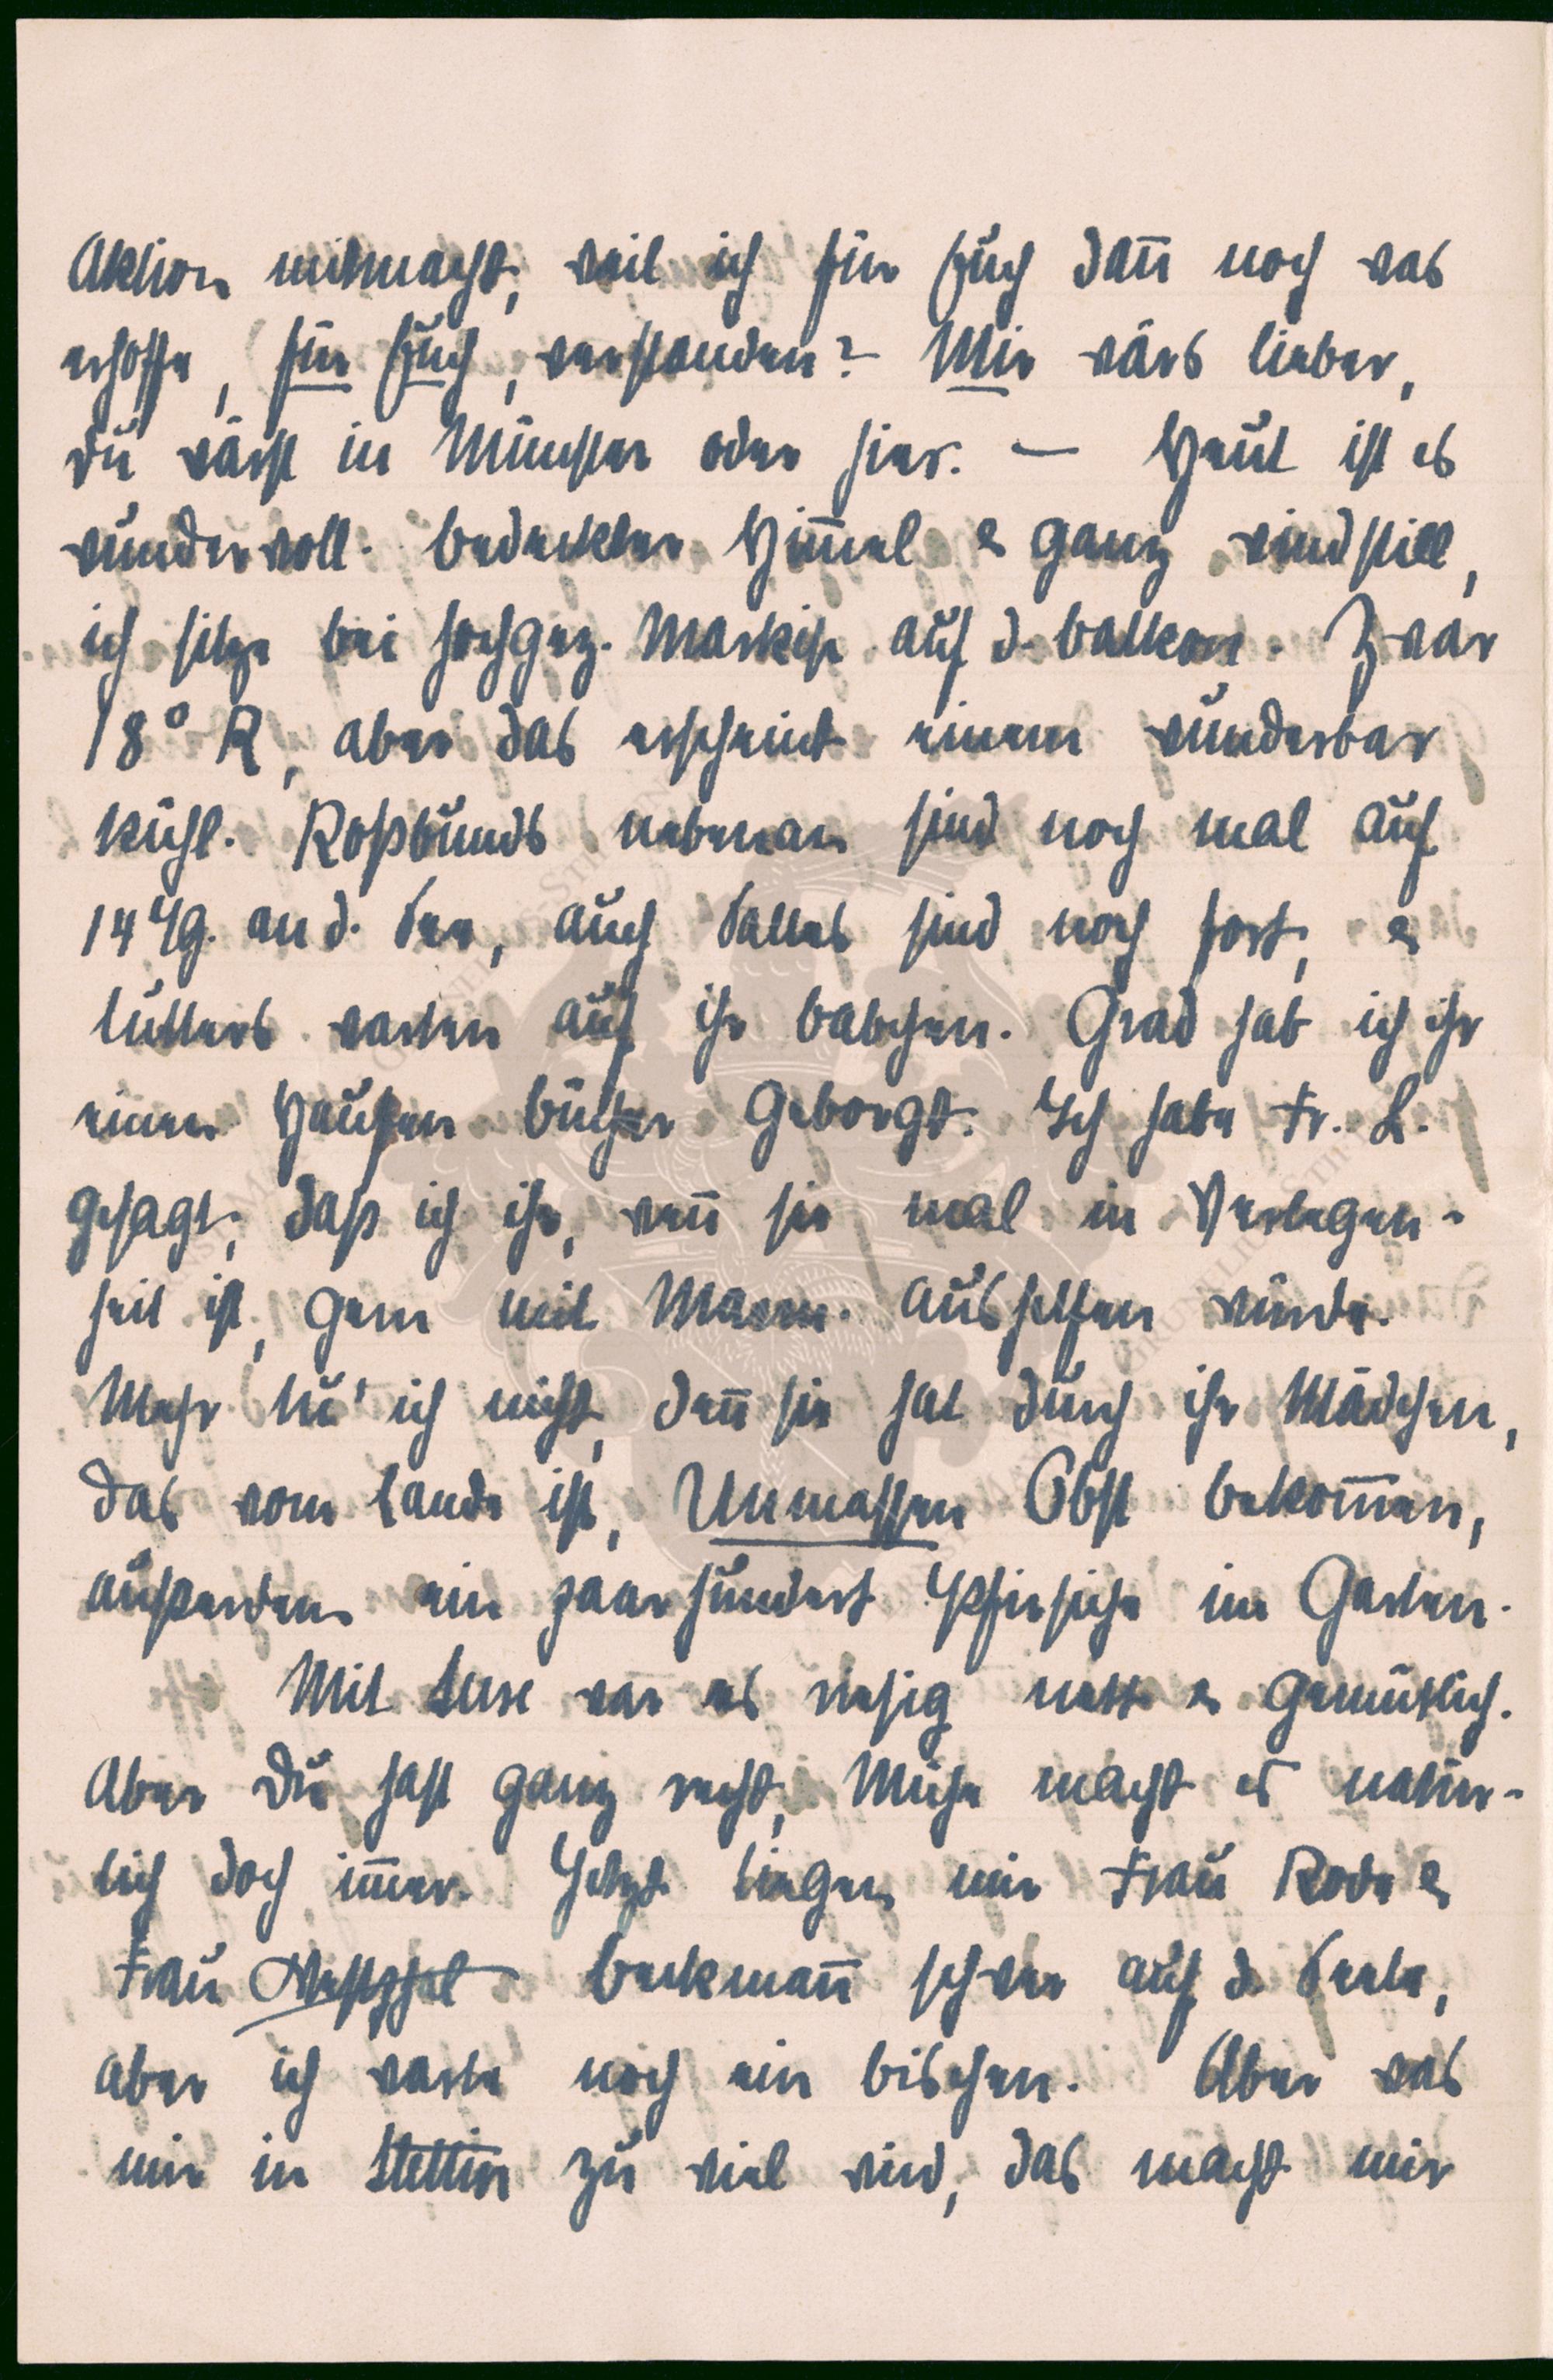 Aktion mitmachst, weil ich für Euch dann noch was
erhoffe, für Euch, verstanden? Mir wärs lieber,
Du wärst in Münster oder hier. — Heut ist es
wundervoll. bedeckter Himmel & ganz windstill,
ich sitze bei hochgez. Markise auf d. Balkon. Zwar
18° R, aber das erscheint einem wunderbar
kühl. Roßbunds nebenan sind noch mal auf
14 Tg. an d. See, auch Salles sind noch fort, &
Lütters warten auf ihr Babchen. Grad hab ich ihr
einen Haufen Bücher geborgt. Ich habe Fr. L.
gesagt, daß ich ihr, wenn sie mal in Verlegen-
heit ist, gern mit Marm. aushelfen würde.
Mehr tu' ich nicht, denn sie hat durch ihr Mädchen,
das vom Lande ist, Unmassen Obst bekommen,
außerdem ein paarhundert Pfirsiche im Garten.
Mit Luse war es riesig nett & gemütlich.
Aber Du hast ganz recht, Mühe macht es natür-
lich doch immer. Jetzt liegen mir Frau Rode &
Frau Beckmann schwer auf d. Seele,
aber ich warte noch ein bischen. Aber was
mir in Stettin zu viel wird, das macht mir